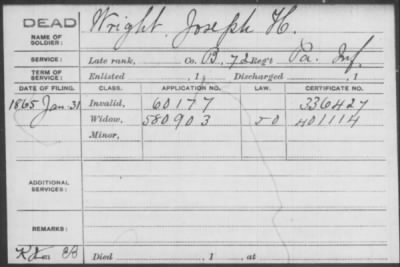 DEAD
Wright, Joseph H.
NAME OF SOLDIER:
SERVICE: Late rank, Co. B, 72 Reg't Pa. Inf.
TERM OF SERVICE: Enlisted , 1 Discharged , 1
DATE OF FILING. CLASS. APPLICATION NO. LAW. CERTIFICATE NO.
1865 Jan. 31 Invalid, 60177 336427
Widow, 580903 401114
Minor,
ADDITIONAL SERVICES:
REMARKS:
Died , 1 , at